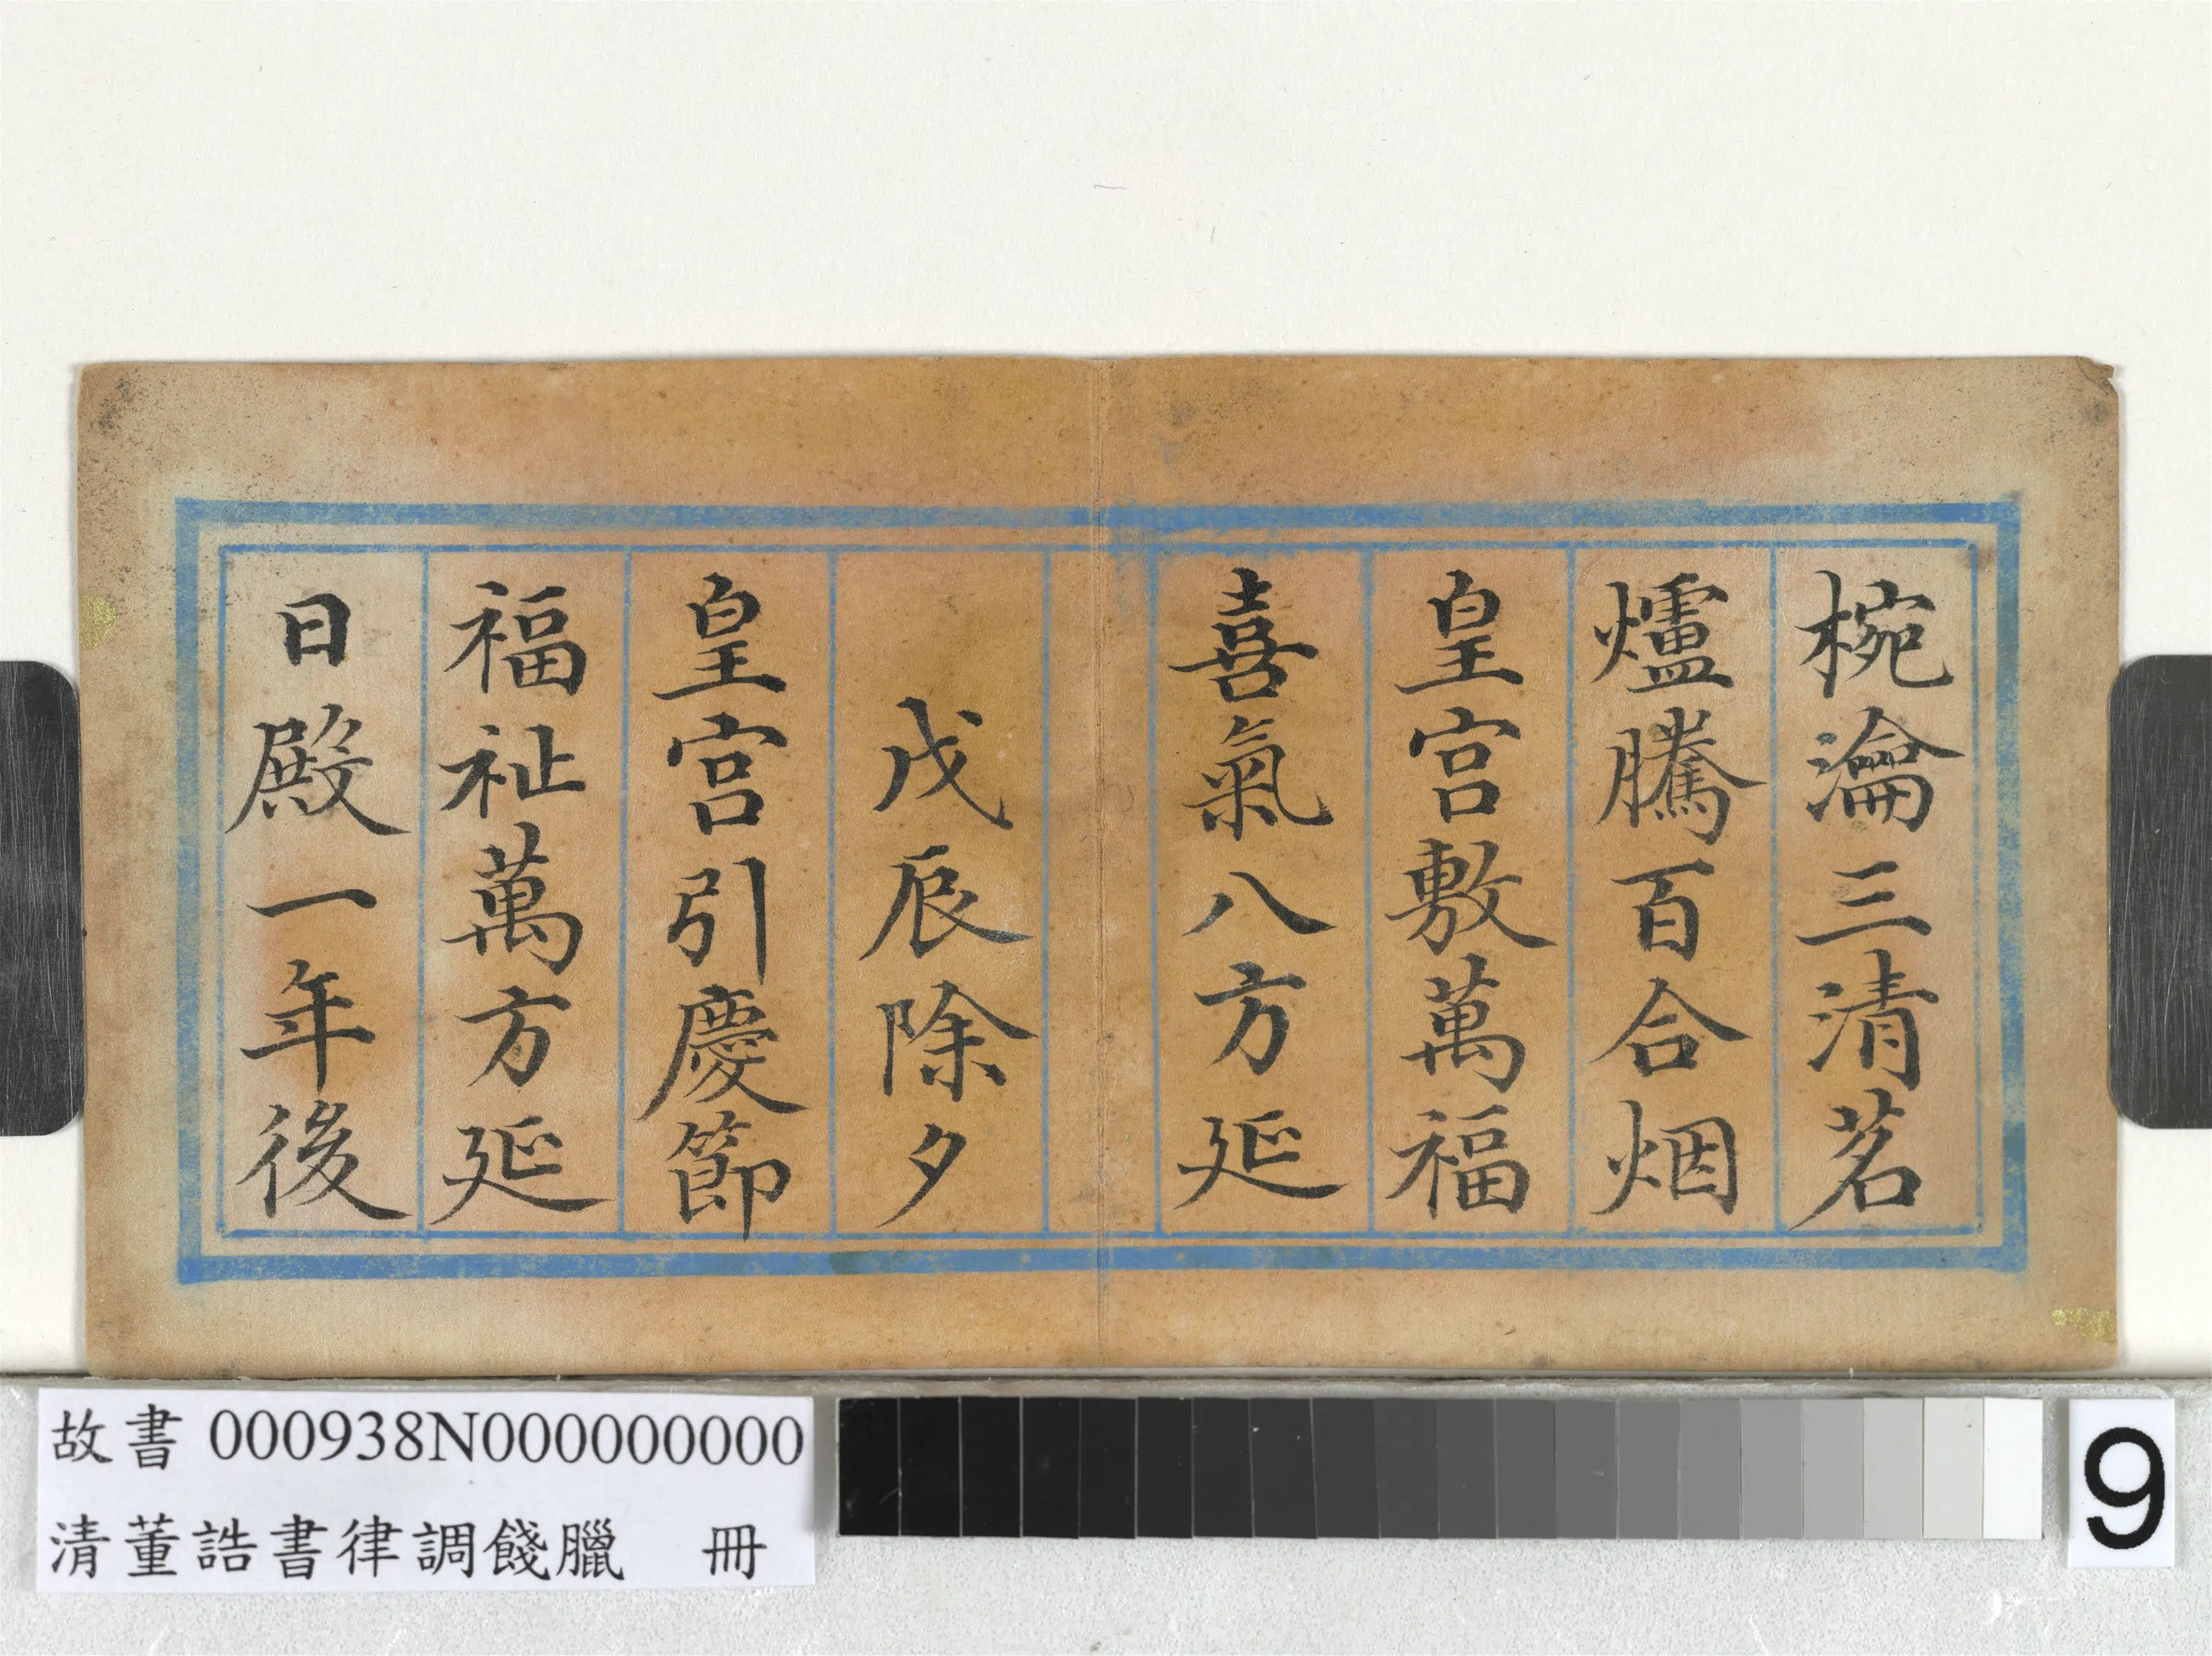 椀瀹三清茗
爐騰百合烟
皇宫敷萬福
喜氣八方延
戊辰除夕
皇宫引慶節
福祉萬方延
日殿一年後
故書 000938N000000000
清董誥書律調餞臘 冊
9